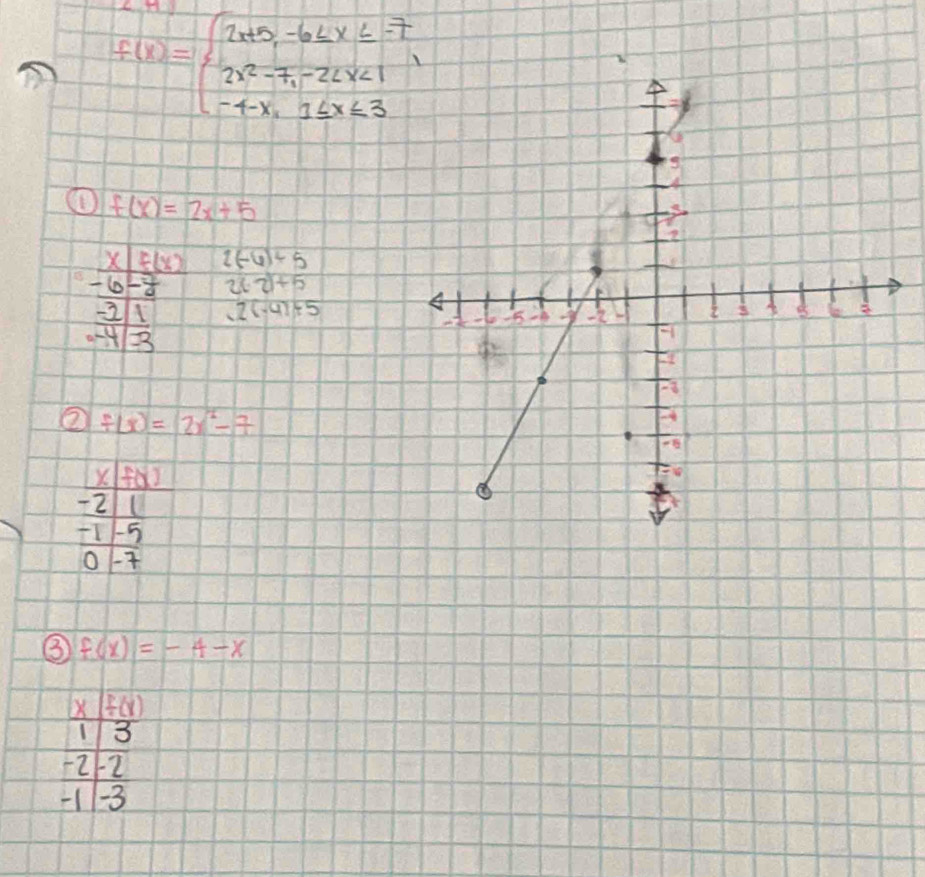 f(x) = { 2x+5, -6 ≤ x ≤ -7
2x² - 7, -2 < x < 1
-4-x, 1 ≤ x ≤ 3
① f(x) = 2x + 5
x | f(x) 2(-6)+5
-6 | -7 2(-2)+5
-2 | 1 2(-4)+5
-4 | -3
② f(x) = 2x² - 7
x | f(x)
-2 | 1
-1 | -5
0 | -7
③ f(x) = - 4 - x
x | f(x)
1 | 3
-2 | -2
-1 | -3
5
4
3
2
1
-7 -6 -5 -4 -3 -2 -1 2 3 4 5 6 7
-1
-2
-3
-4
-5
-6